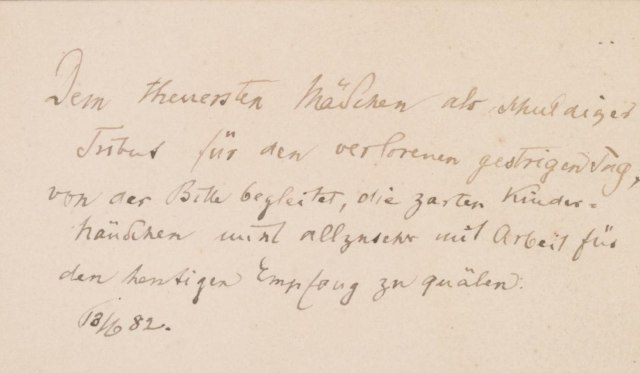 Dem theuersten Mädchen als schuldiger
Tribut für den verlorenen gestrigen Tag,
von der Bitte begleitet, die zarten Kinder=
händchen nicht allzusehr mit Arbeit für
den heutigen Empfang zu quälen.
82.